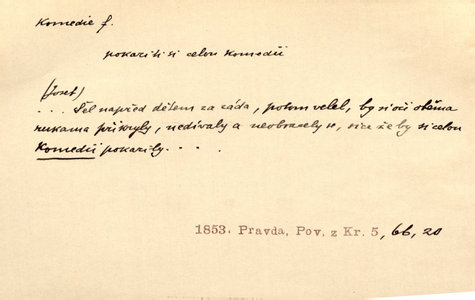 Komedie f.
pokaziti si celou komedii
(Josef)
. . . Šel napřed dětem za záda, potom velel, by si oči oběma
rukama přikryly, nedívaly a neobracely se, sice že by si celou
Komedii pokazily. . . .
1853. Pravda, Pov. z Kr. 5, 66, 20